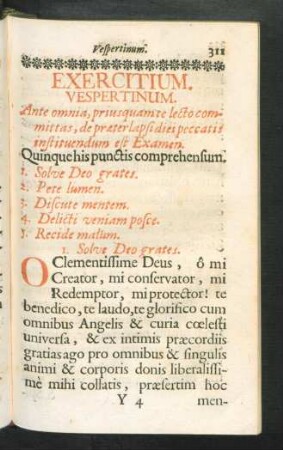 Vespertinum. 311
EXERCITIUM.
VESPERTINUM.
Ante omnia, priusquam te lecto com-
mittas, de præterlapsi diei peccatis
instituendum est Examen.
Quinque his punctis comprehensum.
1. Solve Deo grates.
2. Pete lumen.
3. Discute mentem.
4. Delicti veniam posce.
5. Recide malum.
1. Solve Deo grates.
O Clementissime Deus, ô mi
Creator, mi conservator, mi
Redemptor, mi protector! te
benedico, te laudo, te glorifico cum
omnibus Angelis & curia cœlesti
universa, & ex intimis præcordiis
gratias ago pro omnibus & singulis
animi & corporis donis liberalissi-
mè mihi collatis, præsertim hoc
Y 4 men-